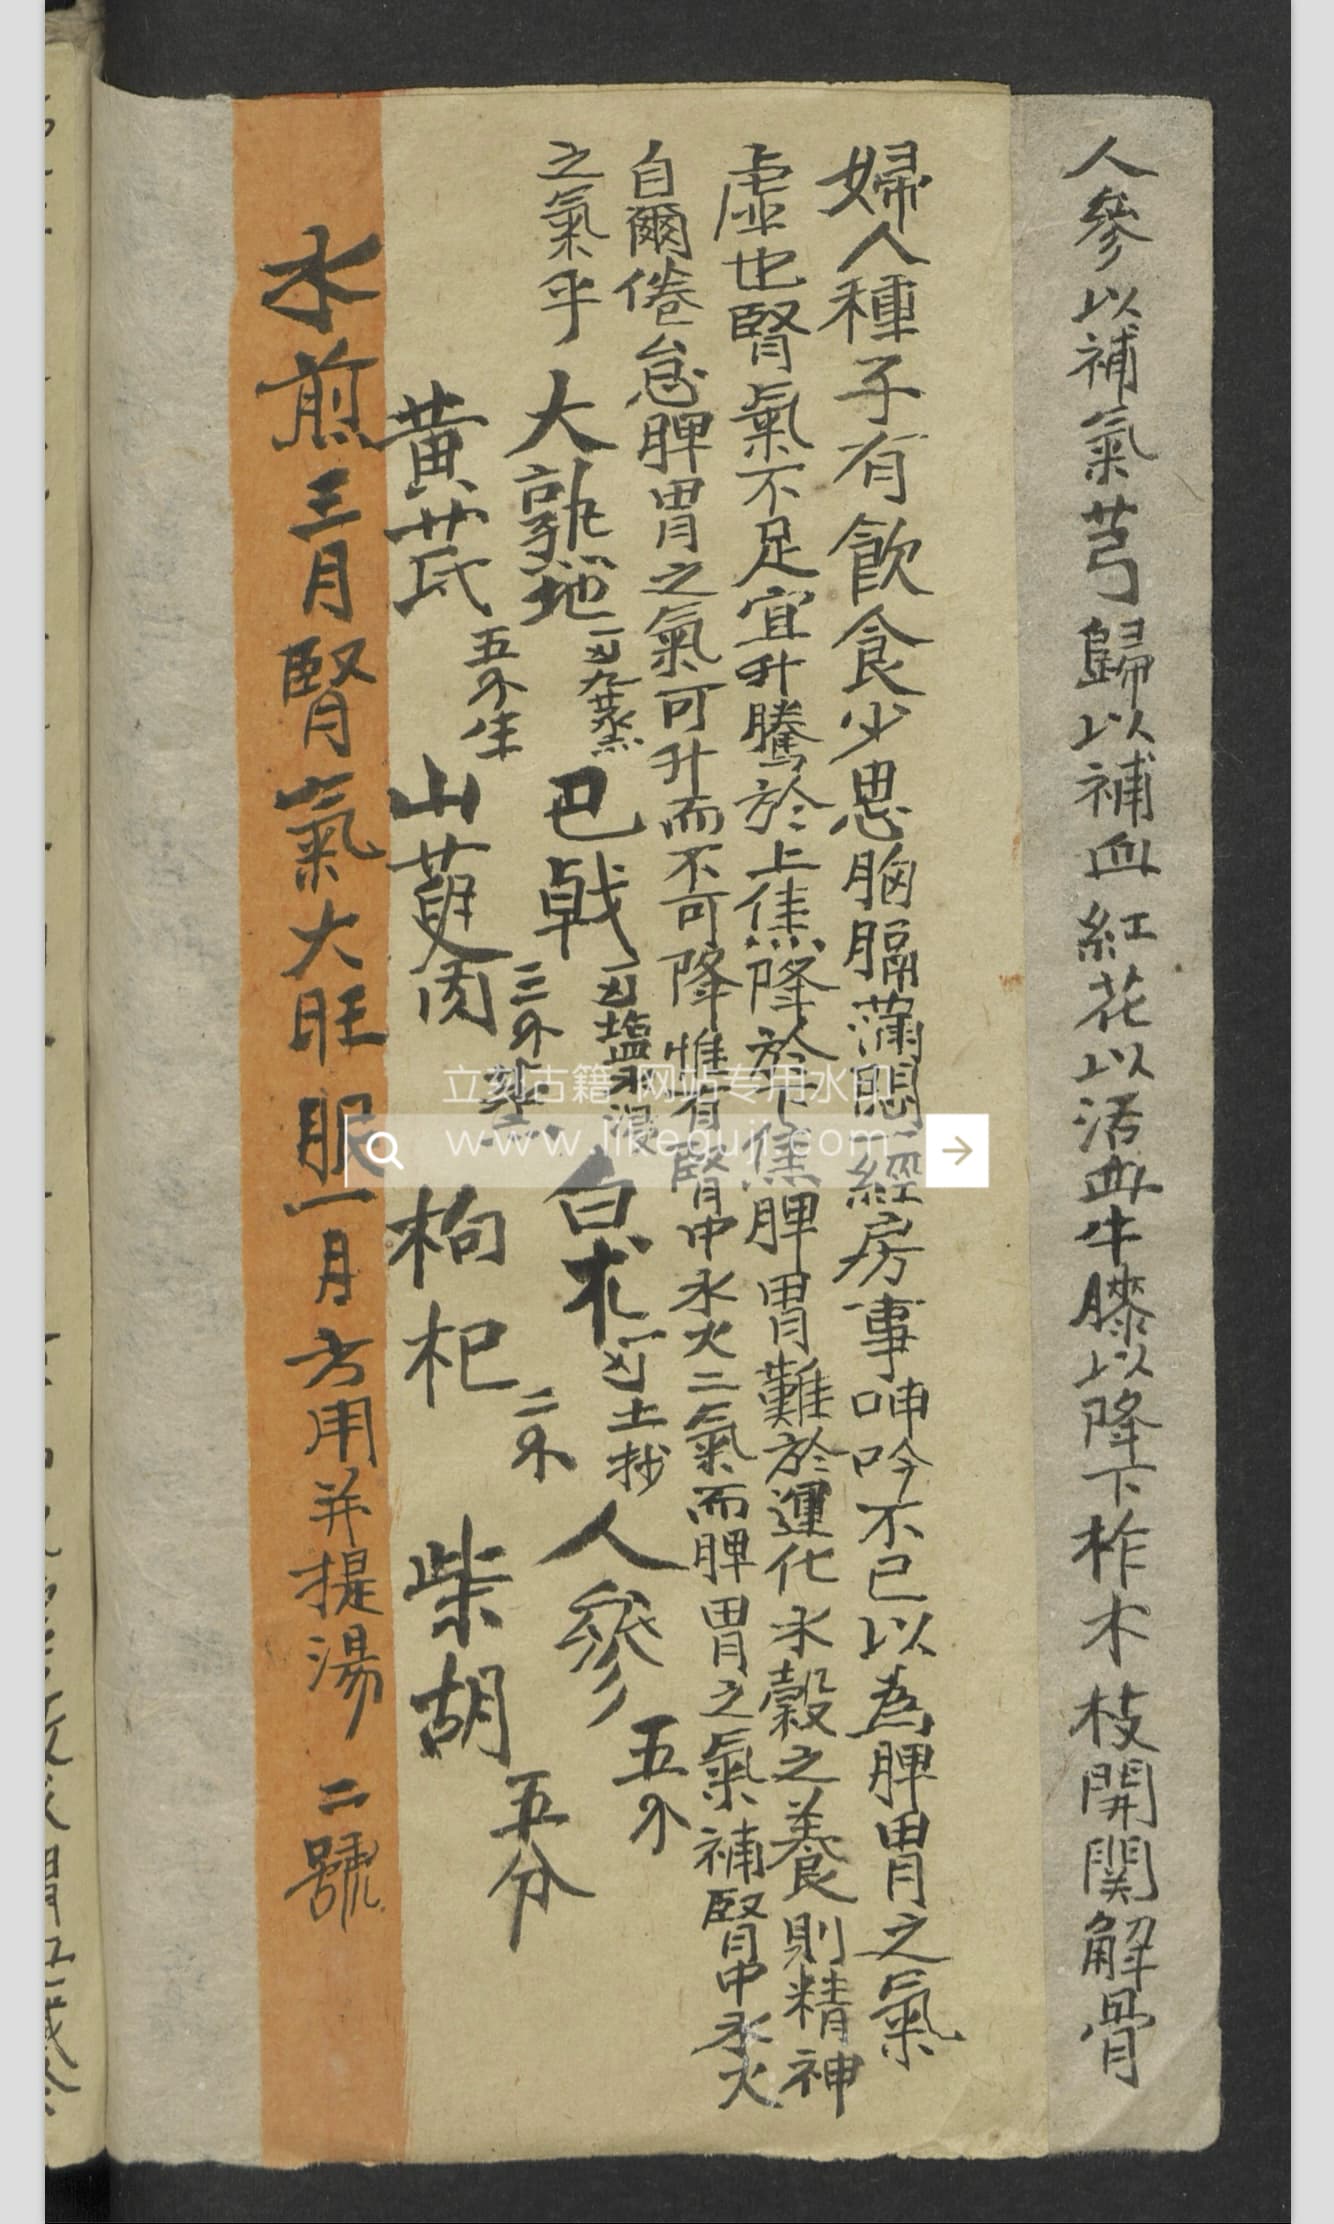 人參以補氣芎歸以補血紅花以活血牛膝以降下柞木枝開関解骨
婦人種子有飲食少思胸膈滿悶經房事呻吟不已以為脾胃之氣
虛也腎氣不足宜升騰於上焦降於下焦脾胃難於運化水穀之養則精神
自爾倦怠脾胃之氣可升而不可降惟有腎中水火二氣而脾胃之氣補腎中水火
之氣乎
大熟地 一両九蒸 巴戟 一両塩水浸 白朮 一両土抄 人參 五个
黃芪 五个生 山萸肉 三个 枸杞 二个 柴胡 五分
水煎三月腎氣大旺服一月方用并提湯 二號
立刻古籍 网站专用水印
www.likeguji.com